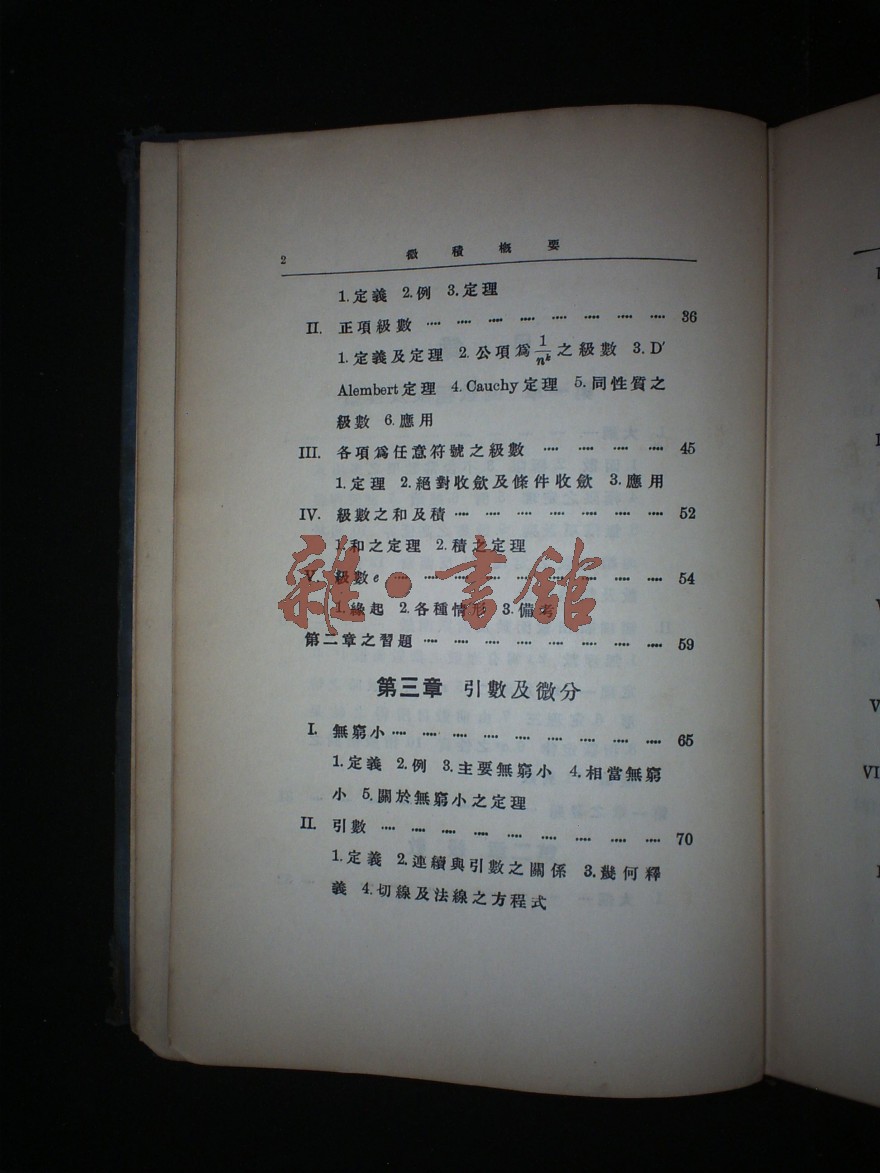 2 微積概要
1.定義 2.例 3.定理
II. 正項級數 ···· ···· ···· ···· ···· ···· ···· ···· 36
1.定義及定理 2.公項爲 1/nᵏ 之級數 3.D′
Alembert定理 4.Cauchy定理 5.同性質之
級數 6.應用
III. 各項爲任意符號之級數 ···· ···· ···· ···· 45
1.定理 2.絕對收歛及條件收歛 3.應用
IV. 級數之和及積 ···· ···· ···· ···· ···· ···· ···· 52
1.和之定理 2.積之定理
V. 級數e ···· ···· ···· ···· ···· ···· ···· ···· ···· 54
1.緣起 2.各種情形 3.備考
雜·書館
第二章之習題 ···· ···· ···· ···· ···· ···· ···· ···· 59
第三章 引數及微分
I. 無窮小 ···· ···· ···· ···· ···· ···· ···· ···· ···· 65
1.定義 2.例 3.主要無窮小 4.相當無窮
小 5.關於無窮小之定理
II. 引數 ···· ···· ···· ···· ···· ···· ···· ···· ···· 70
1.定義 2.連續與引數之關係 3.幾何釋
義 4.切線及法線之方程式